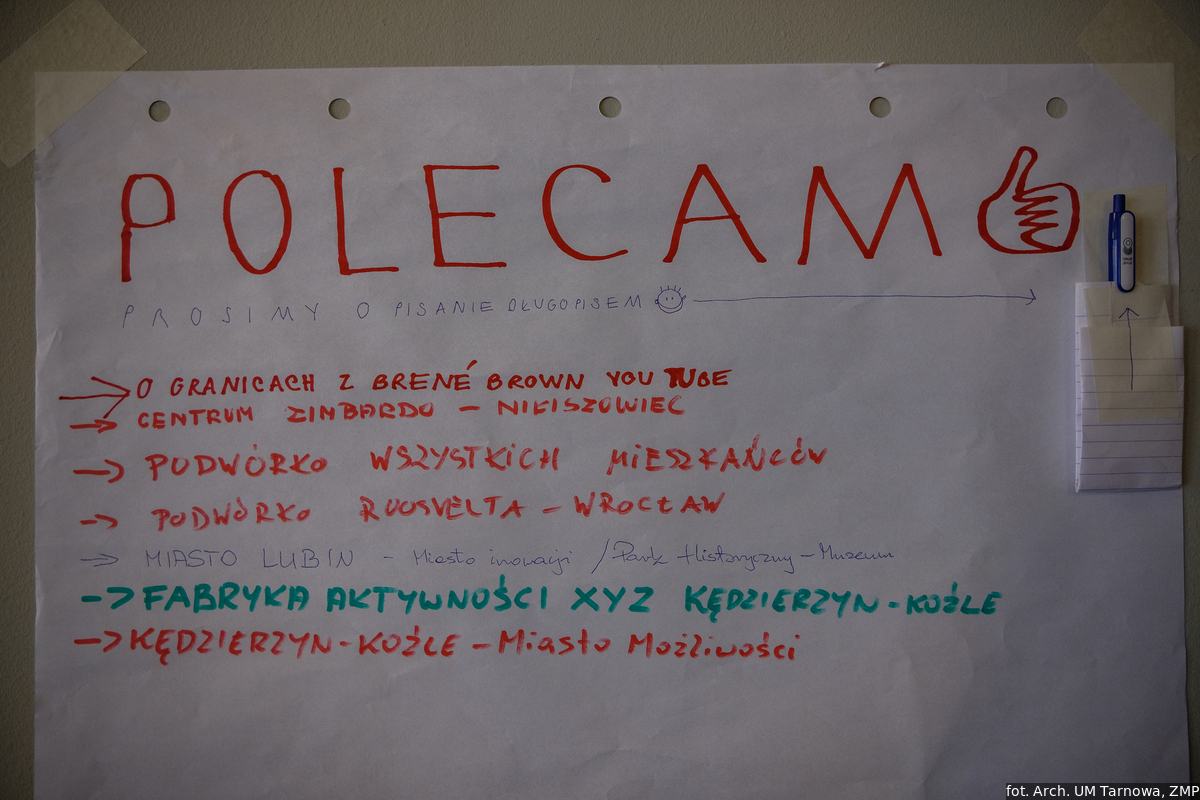 POLECAM
PROSIMY O PISANIE DŁUGOPISEM
O GRANICACH Z BRENÉ BROWN YOU TUBE
CENTRUM ZIMBARDO – NIKISZOWIEC
PODWÓRKO WSZYSTKICH MIESZKAŃCÓW
PODWÓRKO ROOSVELTA – WROCŁAW
MIASTO LUBIN – Miasto inowacji / Park Historyczny – Muzeum
FABRYKA AKTYWNOŚCI XYZ KĘDZIERZYN-KOŹLE
KĘDZIERZYN-KOŹLE – Miasto Możliwości
fot. Arch. UM Tarnowa, ZMP